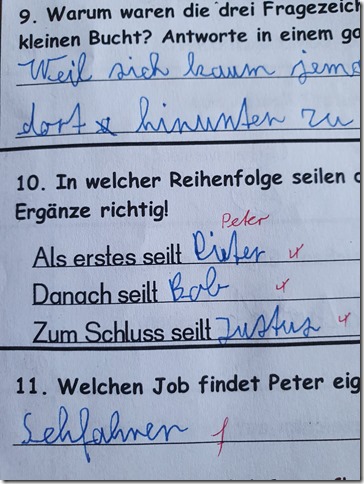 9. Warum waren die drei Fragezeich
kleinen Bucht? Antworte in einem ga
Weil sich kaum jema
dort hinunter zu
10. In welcher Reihenfolge seilen
Ergänze richtig!
Peter
Als erstes seilt Pieter
Danach seilt Bob
Zum Schluss seilt Justus
11. Welchen Job findet Peter eig
Sehfahrer f